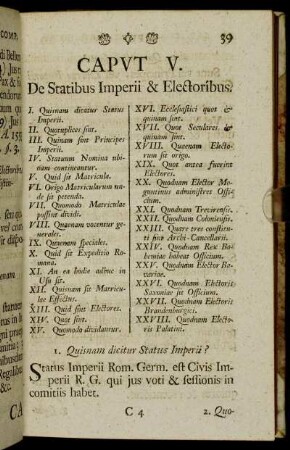 39
CAPVT V.
De Statibus Imperii & Electoribus.
I. Quinam dicatur Status
Imperii.
II. Quotuplices sint.
III. Quinam sint Principes
Imperii.
IV. Statuum Nomina ubi-
nam contineantur.
V. Quid sit Matricula.
VI. Origo Matricularum un-
de sit petenda.
VII. Quomodo Matriculæ
possint dividi.
VIII. Quænam vocentur ge-
nerales.
IX. Quænam speciales.
X. Quid sit Expeditio Ro-
mana.
XI. An ea hodie adhuc in
Usu sit.
XII. Quinam sit Matricu-
læ Effectus.
XIII. Quid sint Electores.
XIV. Quot sint.
XV. Quomodo dividantur.
XVI. Ecclesiastici quot &
quinam sint.
XVII. Quot Seculares &
quinam sint.
XVIII. Quænam Electo-
rum sit origo.
XIX. Quot antea fuerint
Electores.
XX. Quodnam Elector Mo-
guntinus administret Offi-
cium.
XXI. Quodnam Trevirensis.
XXII. Quodnam Coloniensis.
XXIII. Quare tres constitu-
ti sint Archi-Cancellarii.
XXIV. Quodnam Rex Bo-
hemiæ habeat Officium.
XXV. Quodnam Elector Ba-
variæ.
XXVI. Quodnam Electoris
Saxoniæ sit Officium.
XXVII. Quodnam Electoris
Brandenburgici.
XXVIII. Quodnam Electo-
ris Palatini.
1. Quisnam dicitur Status Imperii?
Status Imperii Rom. Germ. est Civis Im-
perii R. G. qui jus voti & sessionis in
comitiis habet.
C 4
2. Quo-